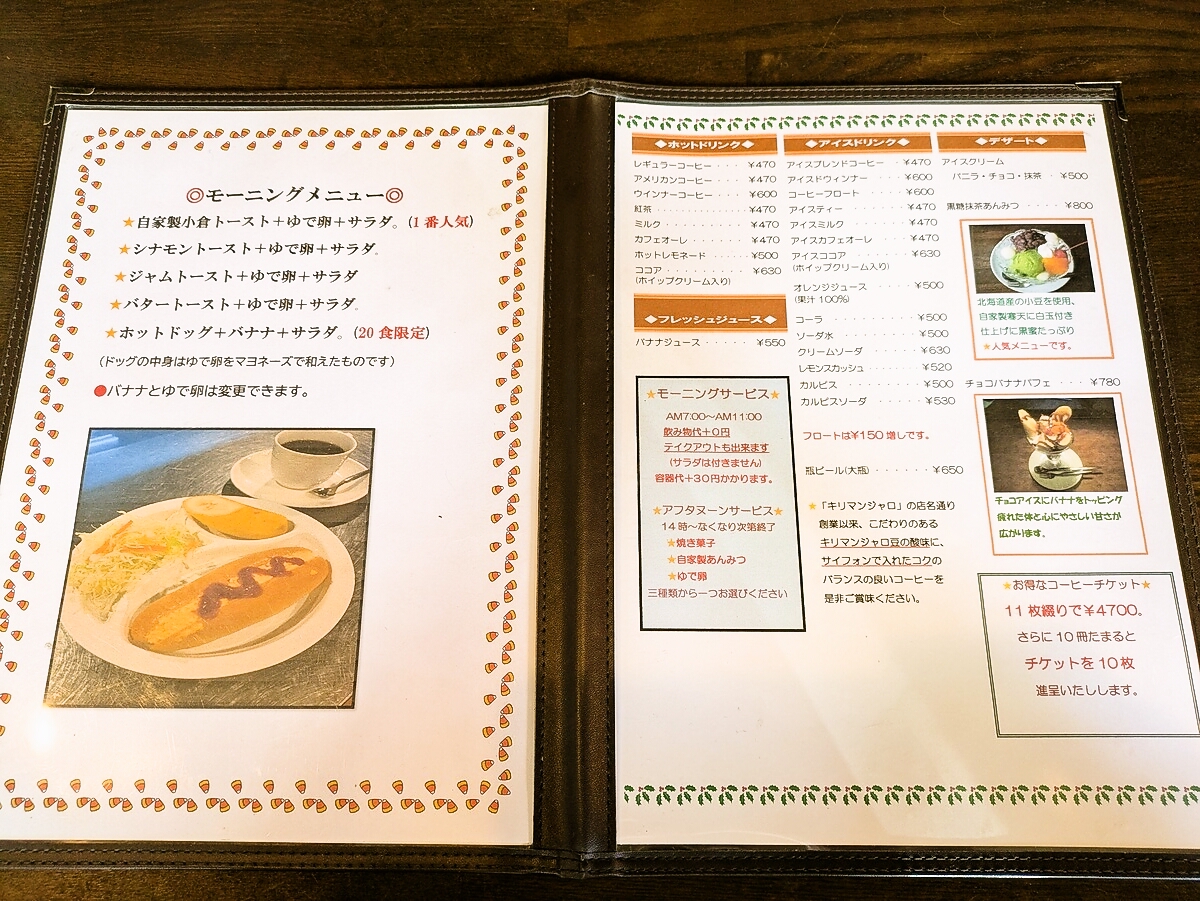 ◎モーニングメニュー◎
★自家製小倉トースト＋ゆで卵＋サラダ。(1番人気)
★シナモントースト＋ゆで卵＋サラダ。
★ジャムトースト＋ゆで卵＋サラダ
★バタートースト＋ゆで卵＋サラダ。
★ホットドッグ＋バナナ＋サラダ。(20食限定)
(ドッグの中身はゆで卵をマヨネーズで和えたものです)
●バナナとゆで卵は変更できます。
◆ホットドリンク◆
レギュラーコーヒー ・・・ ¥470
アメリカンコーヒー ・・・ ¥470
ウインナーコーヒー ・・・ ¥600
紅茶 ・・・・・・・・・ ¥470
ミルク ・・・・・・・・ ¥470
カフェオーレ ・・・・・ ¥470
ホットレモネード ・・・・ ¥500
ココア ・・・・・・・・ ¥630
(ホイップクリーム入り)
◆フレッシュジュース◆
バナナジュース ・・・・・ ¥550
★モーニングサービス★
AM7:00～AM11:00
飲み物代＋0円
テイクアウトも出来ます
(サラダは付きません)
容器代＋30円かかります。
★アフタヌーンサービス★
14時～なくなり次第終了
★焼き菓子
★自家製あんみつ
★ゆで卵
三種類から一つお選びください
◆アイスドリンク◆
アイスブレンドコーヒー ・ ¥470
アイスドウィンナー ・・・ ¥600
コーヒーフロート ・・・・ ¥600
アイスティー ・・・・・・ ¥470
アイスミルク ・・・・・・ ¥470
アイスカフェオーレ ・・・ ¥470
アイスココア ・・・・・・ ¥630
(ホイップクリーム入り)
オレンジジュース ・・・・ ¥500
(果汁100%)
コーラ ・・・・・・・・ ¥500
ソーダ水 ・・・・・・・ ¥500
クリームソーダ ・・・・・ ¥630
レモンスカッシュ ・・・・ ¥520
カルピス ・・・・・・・ ¥500
カルピスソーダ ・・・・・ ¥530
フロートは¥150増しです。
瓶ビール(大瓶) ・・・・・・ ¥650
★「キリマンジャロ」の店名通り
創業以来、こだわりのある
キリマンジャロ豆の酸味に、
サイフォンで入れたコクの
バランスの良いコーヒーを
是非ご賞味ください。
◆デザート◆
アイスクリーム
バニラ・チョコ・抹茶 ・ ¥500
黒糖抹茶あんみつ ・・・・・ ¥800
北海道産の小豆を使用、
自家製寒天に白玉付き
仕上げに黒蜜たっぷり
★人気メニューです。
チョコバナナパフェ ・・・ ¥780
チョコアイスにバナナをトッピング
疲れた体と心にやさしい甘さが
広がります。
★お得なコーヒーチケット★
11枚綴りで¥4700。
さらに10冊たまると
チケットを10枚
進呈いたしします。